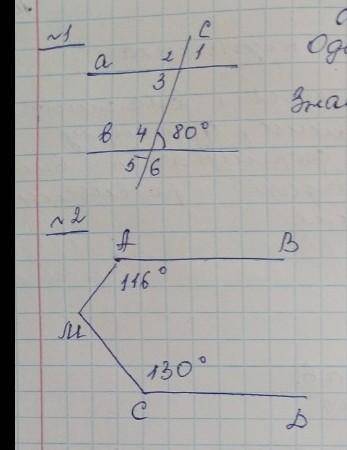 №1
с
а 2 1
3
в 4 80°
5 6
№2
А В
116°
М
130°
С D
Од
Зна